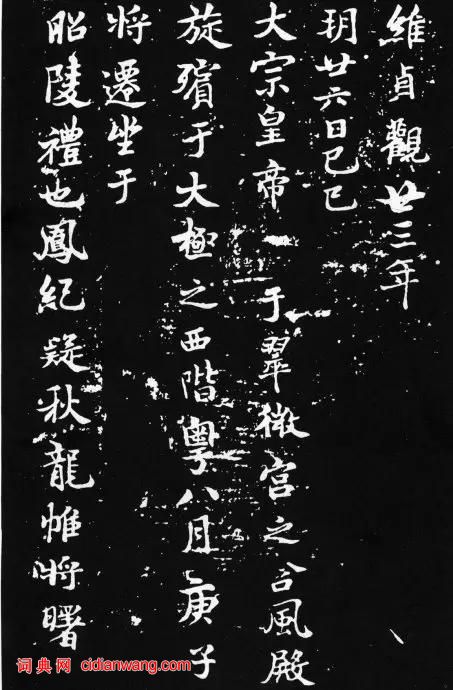 維貞觀廿三年
玥廿六日己巳
大宗皇帝一于翠微宮之含風殿
旋殯于大極之西階粵八月庚子
将遷坐于
昭陵禮也鳳紀疑秋龍帷將曙
词典网 cidianwang.com